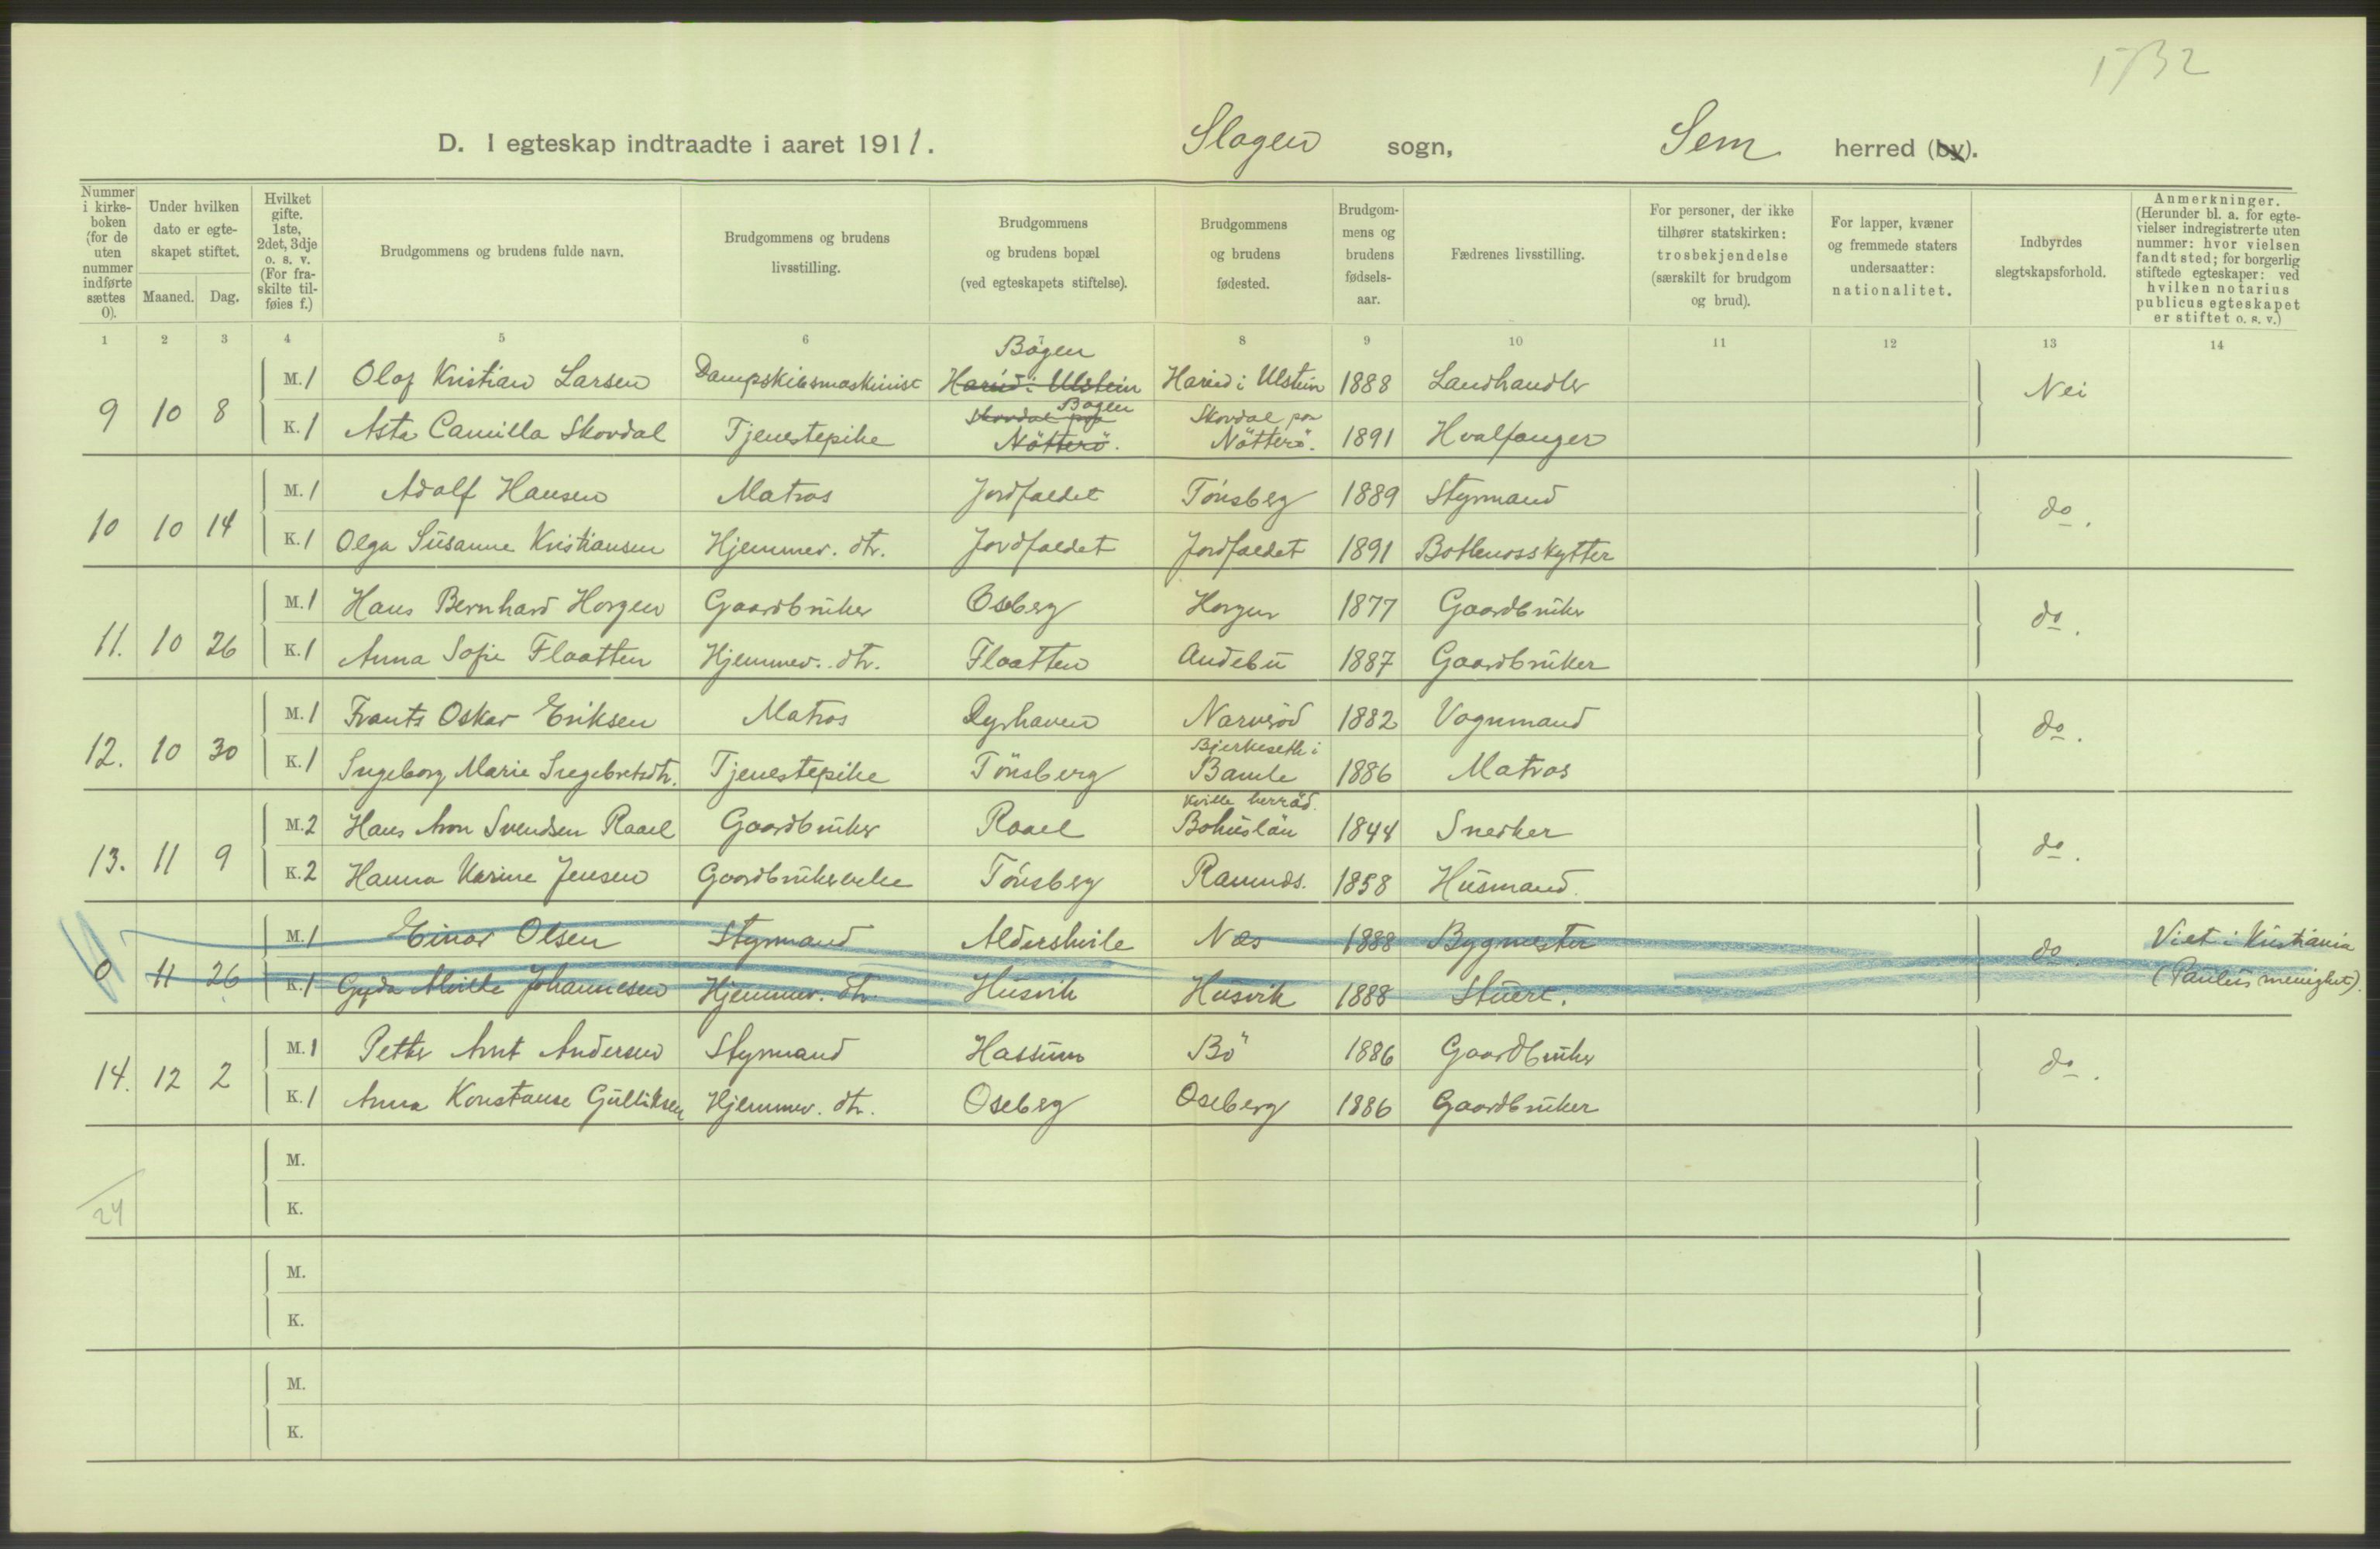 1732
D. I egteskap indtraadte i aaret 1911. Slagen sogn, Sem herred (by).
Nummer i kirkeboken (for de uten nummer indførte sættes 0).
Under hvilken dato er egteskapet stiftet.
Maaned. Dag.
Hvilket gifte. 1ste, 2det, 3dje o. s. v. (For fraskilte tilføies f.)
Brudgommens og brudens fulde navn.
Brudgommens og brudens livsstilling.
Brudgommens og brudens bopæl (ved egteskapets stiftelse).
Brudgommens og brudens fødested.
Brudgommens og brudens fødselsaar.
Fædrenes livsstilling.
For personer, der ikke tilhører statskirken: trosbekjendelse (særskilt for brudgom og brud).
For lapper, kvæner og fremmede staters undersaatter: nationalitet.
Indbyrdes slegtskapsforhold.
Anmerkninger. (Herunder bl. a. for egtevielser indregistrerte uten nummer: hvor vielsen fandt sted; for borgerlig stiftede egteskaper: ved hvilken notarius publicus egteskapet er stiftet o. s. v.)
1 2 3 4 5 6 7 8 9 10 11 12 13 14
Bögen
9 10 8 M. 1 Olaf Kristian Larsen Dampskibsmaskinist Hareid i Ulstein Hareid i Ulstein 1888 Landhandler Nei
K. 1 Asta Camilla Skovdal Tjenestepike Skovdal paa Nötterö. Bögen Skovdal paa Nötterö. 1891 Hvalfanger
10 10 14 M. 1 Adolf Hansen Matros Jordfaldet Tönsberg 1889 Styrmand do.
K. 1 Olga Susanne Kristiansen Hjemmev. dtr. Jordfaldet Jordfaldet 1891 Bottlenosskytter
11. 10 26 M. 1 Hans Bernhard Horgen Gaardbruker Oseberg Horgen 1877 Gaardbruker do.
K. 1 Anna Sofie Flaatten Hjemmev. dtr. Flaatten Andebu 1887 Gaardbruker
12. 10 30 M. 1 Frants Oskar Eriksen Matros Dyrhaven Narverød 1882 Vognmand do.
K. 1 Ingeborg Marie Ingebretsdtr. Tjenestepike Tönsberg Bjerkeseth i Bamle 1886 Matros
13. 11 9 M. 2 Hans Aron Svendsen Raael Gaardbruker Raael Kville herrad. Bohuslän 1844 Snedker do.
K. 2 Hanna Karine Jensen Gaardbrukerenke Tönsberg Ramnæs. 1858 Husmand.
0 11 26 M. 1 Einar Olsen Styrmand Aldershvile Næs 1888 Bygmester do Viet i Kristiania
K. 1 Gyda Alvilde Johannesen Hjemmev. dtr Husvik Husvik 1888 Stuert. (Paulus menighet).
14. 12 2 M. 1 Petter Arnt Andersen Styrmand Hassum Bö 1886 Gaardbruker do.
K. 1 Anna Konstanse Gulliksen Hjemmev. dtr. Oseberg Oseberg 1886 Gaardbruker
M.
24
K.
M.
K.
M.
K.